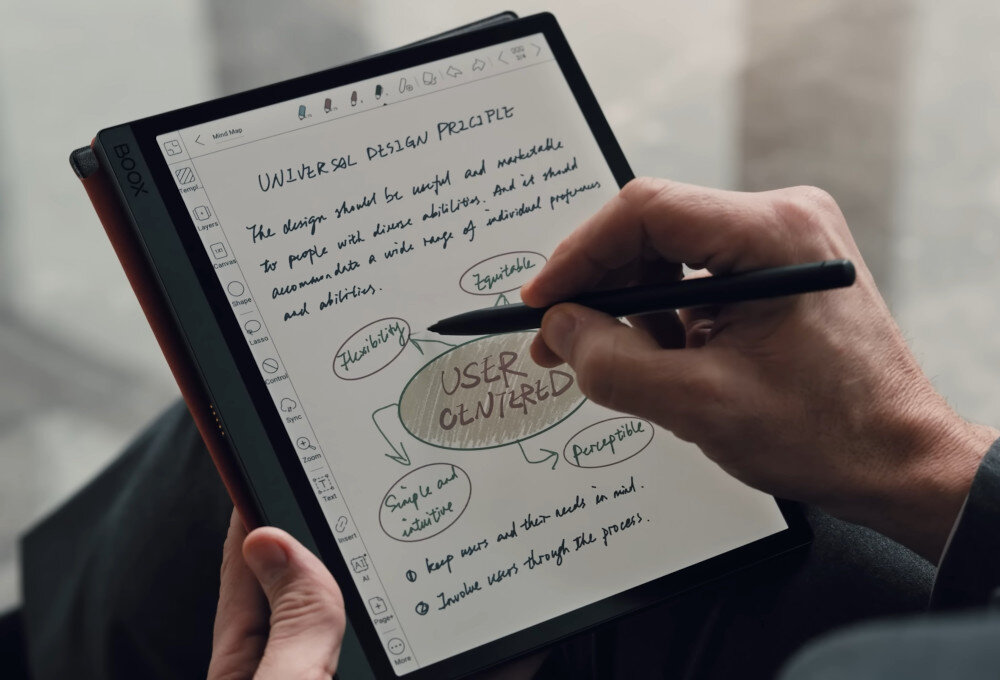 BOOX
Mind Map
2/4
Templ..
Layers
Canvas
Shape
Lasso
Control
Sync
Zoom
Text
Insert
AI
Page+
More
UNIVERSAL DESIGN PRICIPLE
The design should be useful and marketable
to people with diverse abilities. And it should
accommondate a wide range of individual preferences
and abilities.
Equitable
Flexibility
USER
CENTERED
Perceptible
Simple and
intuitive
① keep users and their needs in mind.
② Involve users through the process.